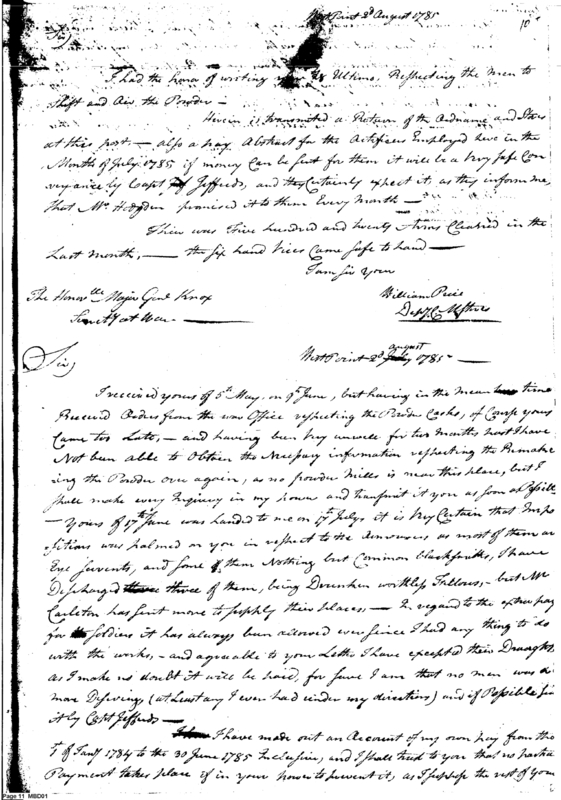 West Point 2d August 1785
10
Sir,
I had the honor of writing you Ultimo. Respecting the men to
Shift and Air the Powder —
Herein is transmitted a Return of the Ordnance and Stores
at this post — also a pay Abstract for the Artificers Employed here in the
Month of July 1785 if money Can be sent for them it will be a Very safe Con
veyance by Capt Jeffreds, and they Certainly expect it, as they inform me,
that Mr. Hodgden promised it to them Every Month —
There was Five hundred and twenty Arms Cleaned in the
Last Month, — the six hand Vices Came safe to hand —
I am Sir your
The Honorble Major Genl Knox
William Price
Secrety at War
Depy C M Stores
West Point 2d August July 1785 —
Sir,
I received yours of 5th May, on 9th June, but having in the mean time
Received Orders from the war Office respecting the Powder Casks, of Course yours
Came too Late, — and having been Very unwell for two Months past I have
Not been able to Obtain the Necessary information respecting the Remake
ing the Powder over again, as no powder Mills is near this place, but I
shall make every Inquiry in my power and transmit it you as soon as Possible
— Yours of 17th June was handed to me on July, it is Very Certain that Impo
sitions was palmed on you in respect to the Armourers as most of them are
Eye servents, and some of them Nothing but Common blacksmiths, I have
Discharged three of them, being Drunken worthless Fellows, — but Mr.
Carleton has sent more to supply their places, — In regard to the extra pay
for Soldiers it has always been allowed ever since I had any thing to do
with the works, — and agreeable to your Letter I have excepted their Draughts
as I make no doubt it will be paid, for sure I am that no men was
more Deserving (at Least any I ever had under my direction) and if Possible
it by Capt Jeffreds —
I have made out an Account of my own pay from the
1st of Jany 1784 to the 30 June 1785 Inclusive, and I shall trust to you that no partial
Payment takes place if in your power to prevent it, as I suppose the rest of your
Page 11 MBD01